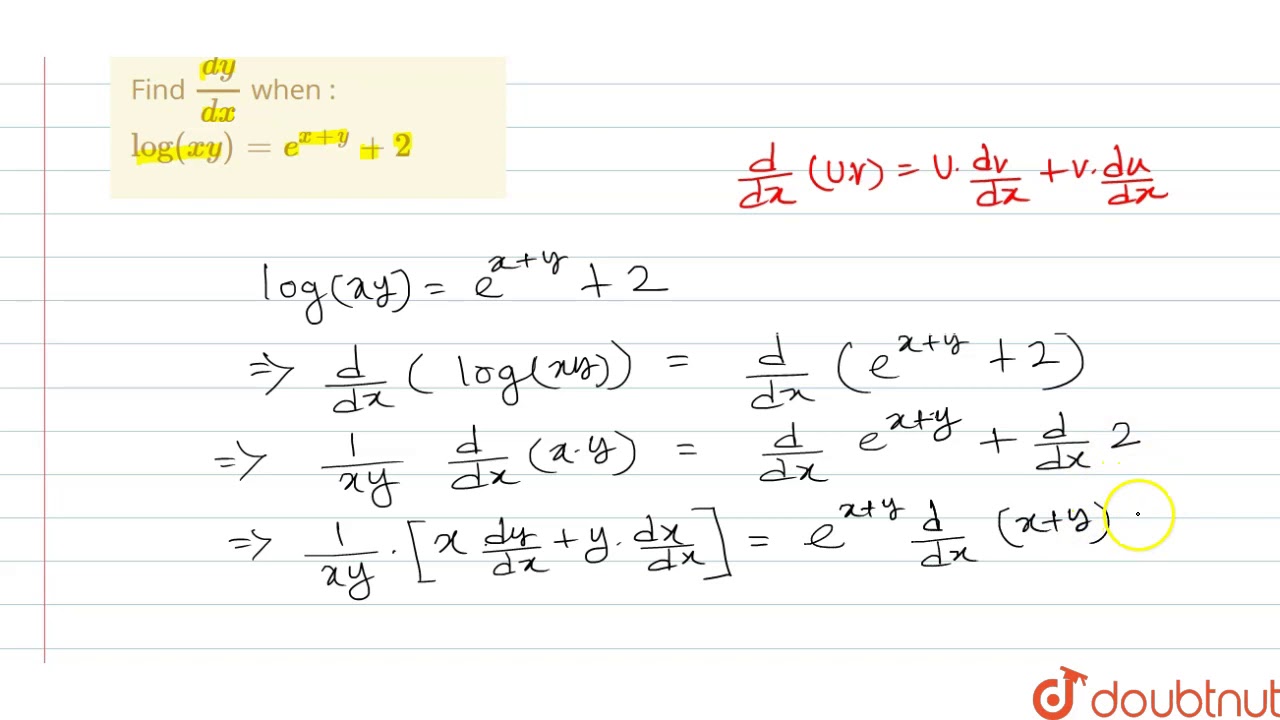 Find dy/dx when :
log(xy) = e^{x+y} + 2
d/dx (u.v) = u. dv/dx + v. du/dx
log(xy) = e^{x+y} + 2
=> d/dx ( log(xy)) = d/dx (e^{x+y} + 2)
=> 1/xy d/dx (x.y) = d/dx e^{x+y} + d/dx 2
=> 1/xy . [x dy/dx + y. dx/dx] = e^{x+y} d/dx (x+y)
doubtnut